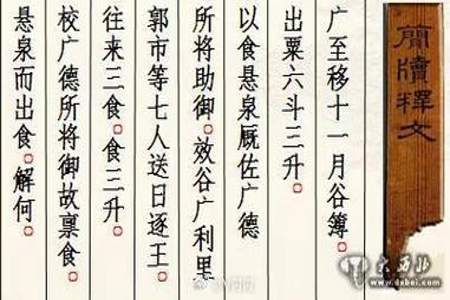 簡牘釋文
广至移十一月谷簿。
出粟六斗三升
以食悬泉厩佐广德
所将助御。效谷广利里
郭市等七人送日逐王。
往来三食。食三升。
校广德所将御故禀食。
悬泉而出食。解何。
大西北
www.dxbei.com